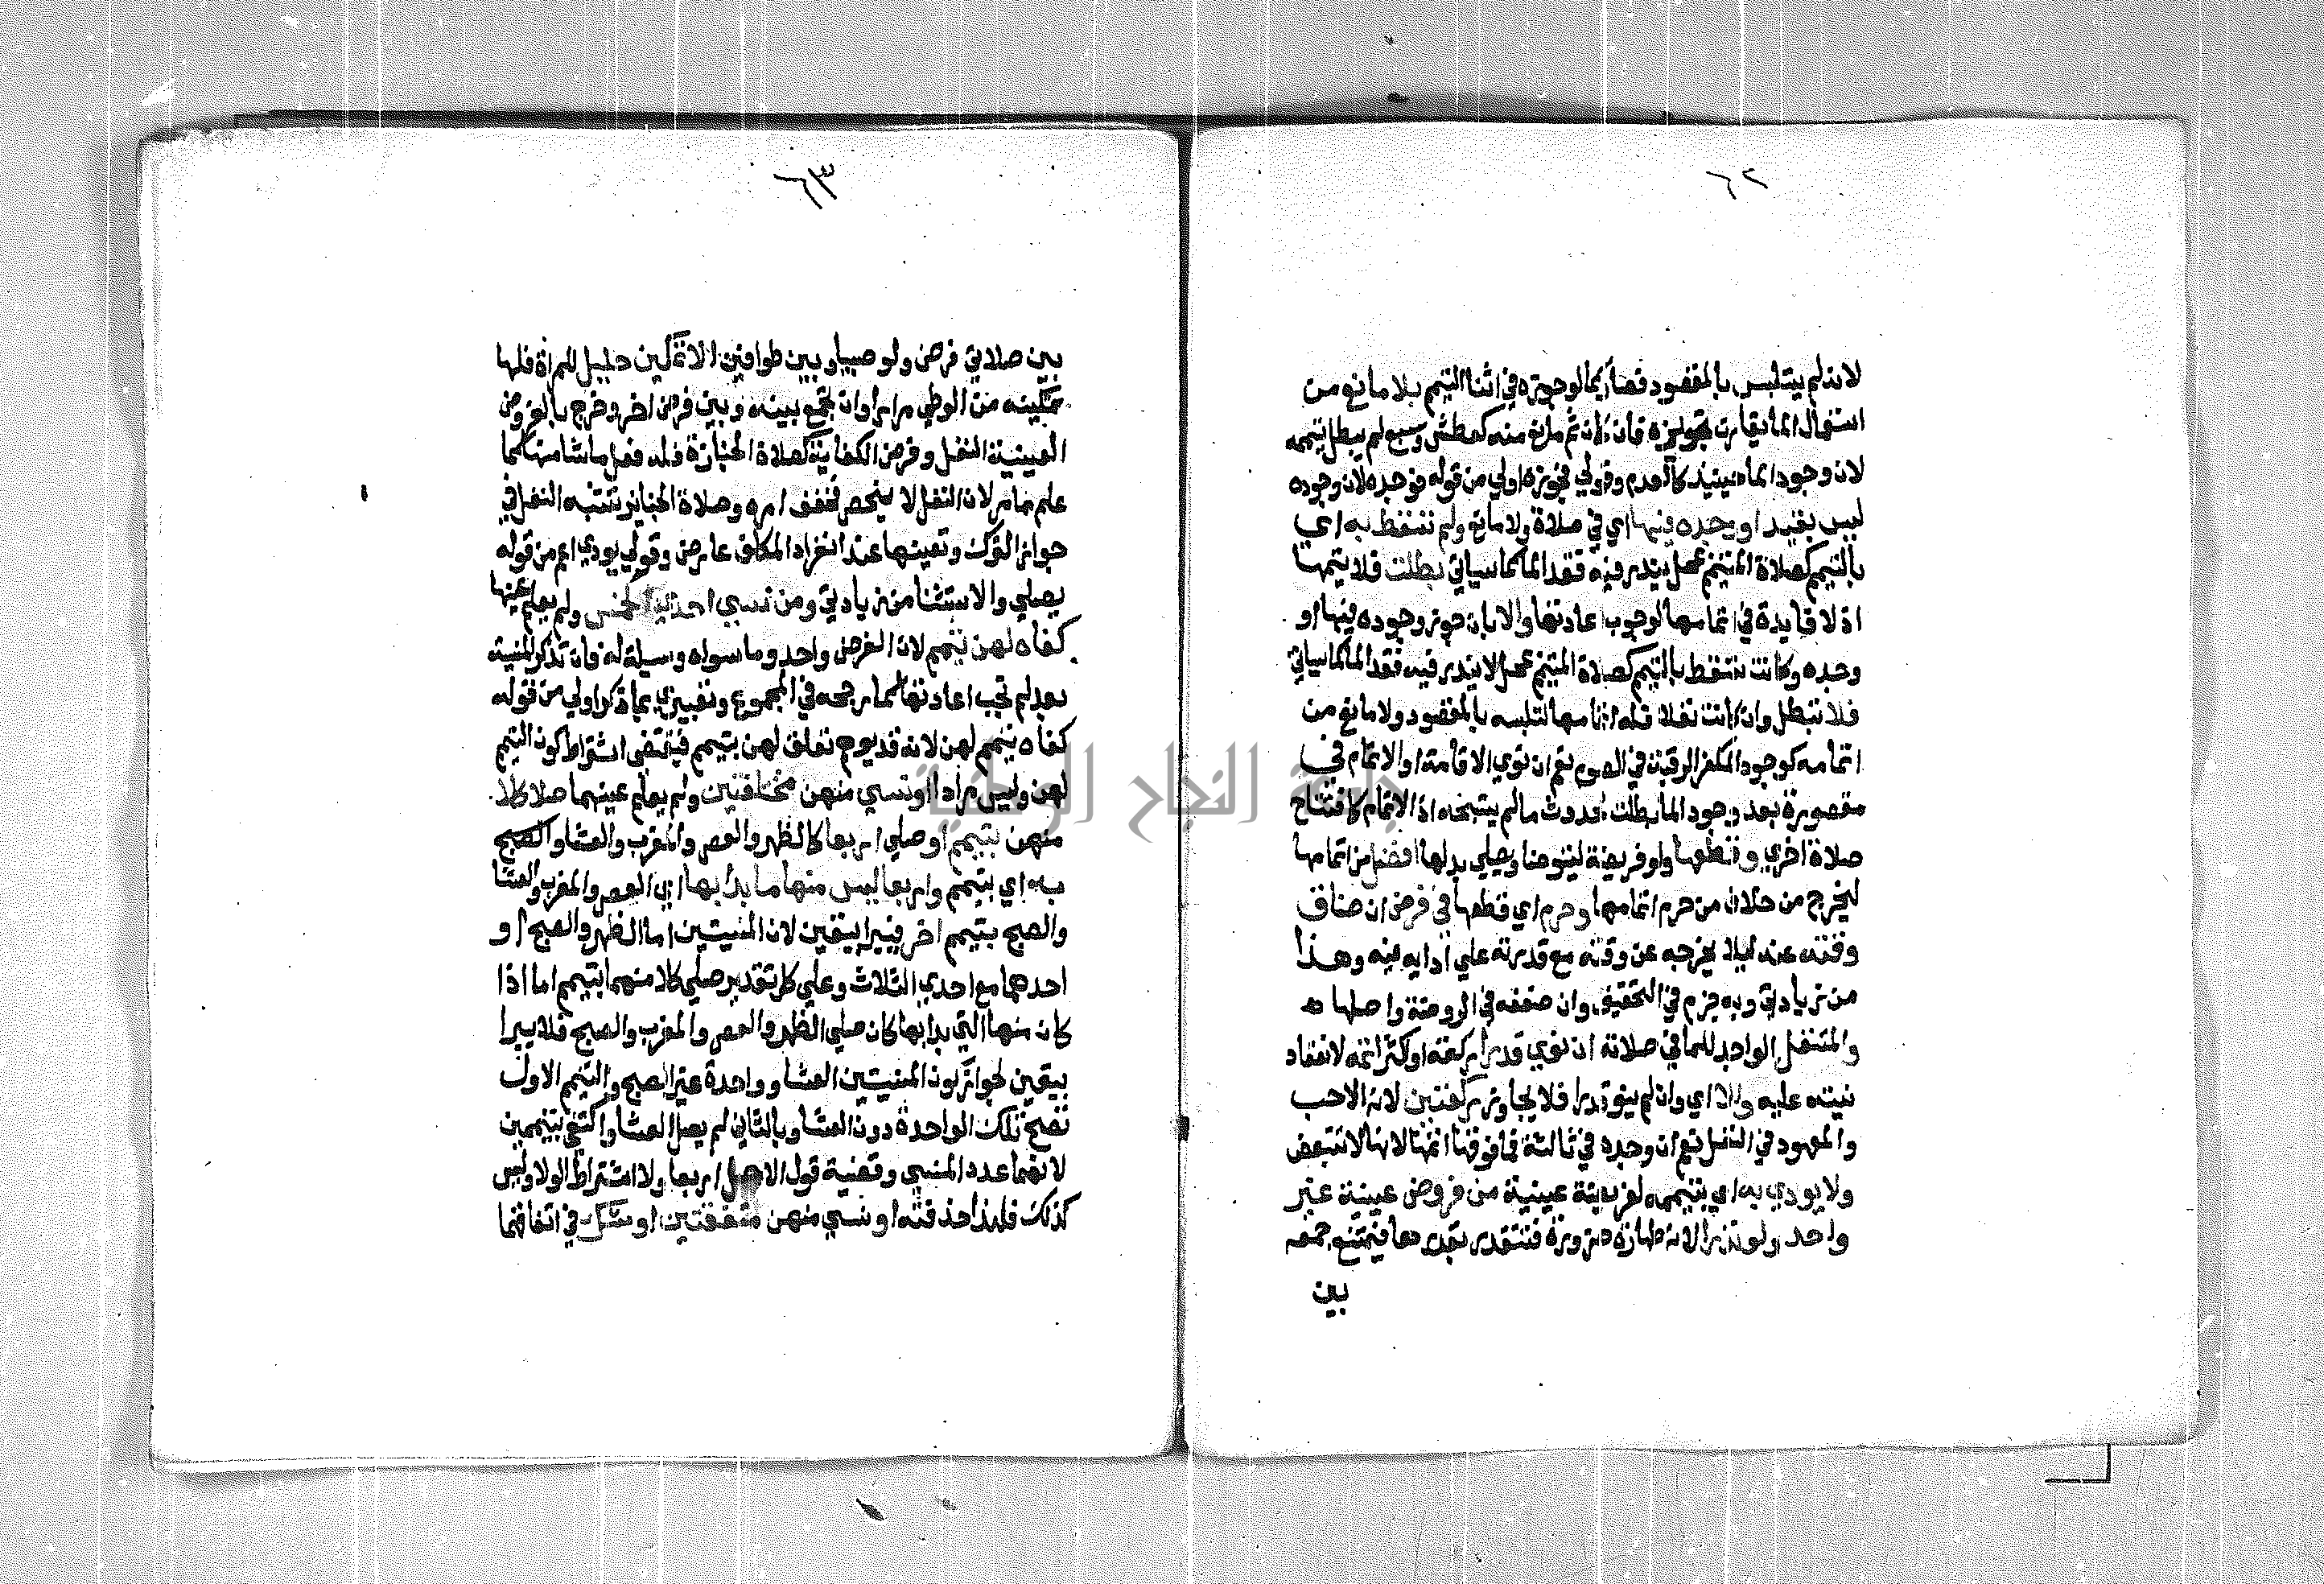 ٦٢
لانه لم يتلبس بالمقصود فصار كما لو جوزه في اثنا التيمم بلا مانع من
استعمال الما يقارن تجويزه فان كان ثم مانع منه كعطش وسبع لم يبطل تيممه
لان وجود الما حينيذ كالعدم وقولي فجوزه اولي من قوله فوجده لان وجوده
ليس بقيد او وجده فيها اي في صلاة ولا مانع ولم تسقط به اي
بالتيمم كصلاة المتيمم بمحل يندر فيه فقد الما كما سياتي بطلت فلا يتمها
اذ لا فايدة في اتمامها لوجوب اعادتها والا بان جوز وجوده فيها او
وجده وكانت تسقط بالتيمم كصلاة المتيمم بمحل لا يندر فيه فقد الما كما سياتي
فلا تبطل وان كانت نفلا فله اتمامها لتلبسه بالمقصود ولا مانع من
اتمامه كوجود المكفر الرقبة في الصوم نعم ان نوي الاقامة او الاتمام في
مقصورة بعد وجود الما بطلت لحدوث ما لم يستبحه اذ الاتمام كافتتاح
صلاة اخري وقطعها ولو فريضة ليتوضا ويصلي بدلها افضل من اتمامها
ليخرج من خلاف من حرم اتمامها وحرم اي قطعها في فرض ان ضاق
وقته عنه ليلا يخرجه عن وقته مع قدرته علي ادايه فيه وهذا
من زيادتي وبه جزم في التحقيق وان ضعفه في الروضة واصلها
والمتنفل الواجد للما في صلاته ان نوي قدرا ركعة او اكثر اتمه لانعقاد
نيته عليه والا اي وان لم ينو قدرا فلا يجاوز ركعتين لانه الاحب
والمعهود في النفل نعم ان وجده في ثالثة فما فوقها اتمها لانها لا تتبعض
ولا يودي به اي بتيممه لفريضة عينية من فروض عينية غير
واحد ولو نذرا لانه طهارة ضرورة فتتقدر بقدرها فيمتنع جمعه
بين
٦٣
بين صلاتي فرض ولو صبيا وبين طوافين الا تمكين حليل للمراة فلها
تمكينه من الوطي مرارا وان تجمع بينه وبين فرض اخر وخرج بالفروض
العينية النفل وفرض الكفاية كصلاة الجنازة فله فعل ما شا منها كما
علم مما مر لان النفل لا ينحصر فخفف امره وصلاة الجنايز تشبه النفل في
جواز الترك وتعينها عند انفراد المكلف عارض وقولي يودي اعم من قوله
يصلي والاستثنا من زيادتي ومن نسي احدي الخمس ولم يعلم عينها
كفاه لهن تيمم لان الفرض واحد وما سواه وسيلة له فان تذكر المنسية
بعد لم تجب اعادتها كما رجحه في المجموع وتعبيري بما ذكر اولي من قوله
كفاه تيمم لهن لانه قد يوهم تعلق لهن بتيمم فيقتضي اشتراط كون التيمم
لهن وليس مرادا او نسي منهن مختلفتين ولم يعلم عينهما صلا كلا
منهن بتيمم او صلي اربعا كالظهر والعصر والمغرب والعشا والصبح
به اي بتيمم واربعا ليس منها ما بدا بها اي العصر والمغرب والعشا
والصبح بتيمم اخر فيبرا بيقين لان المنسيتين اما الظهر والصبح او
احدهما مع احدي الثلاث وعلي كل تقدير صلي كلا منهما بتيمم اما اذا
كان منها التي بدا بها كان صلي الظهر والعصر والمغرب والصبح فلا يبرا
بيقين لجواز كون المنسيتين العشا وواحدة غير الصبح والتيمم الاول
تصح تلك الواحدة دون العشا وبالثاني لم يصل العشا واكتفي بتيممين
لانهما عدد المنسي وقضية قول الاصل اربعا ولا اشتراط الولا وليس
كذلك فلهذا حذفته او نسي منهن متفقتين او شك في اتفاقهما
جامعة النجاح الوطنية